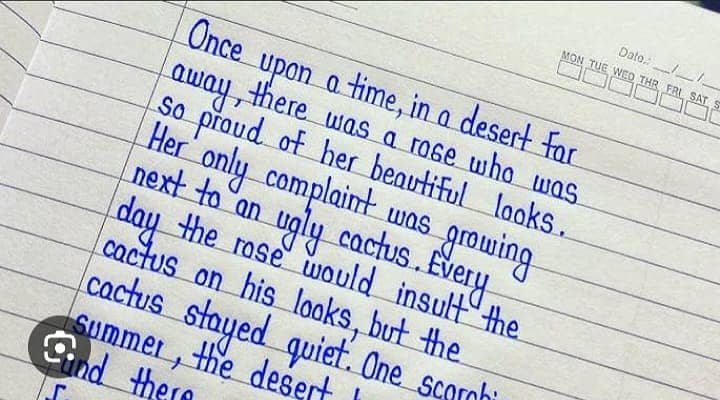 Date.: __/__/__
MON TUE WED THR FRI SAT S
Once upon a time, in a desert far
away, there was a rose who was
so proud of her beautiful looks.
Her only complaint was growing
next to an ugly cactus. Every
day the rose would insult the
cactus on his looks, but the
cactus stayed quiet. One
summer, the desert
and there